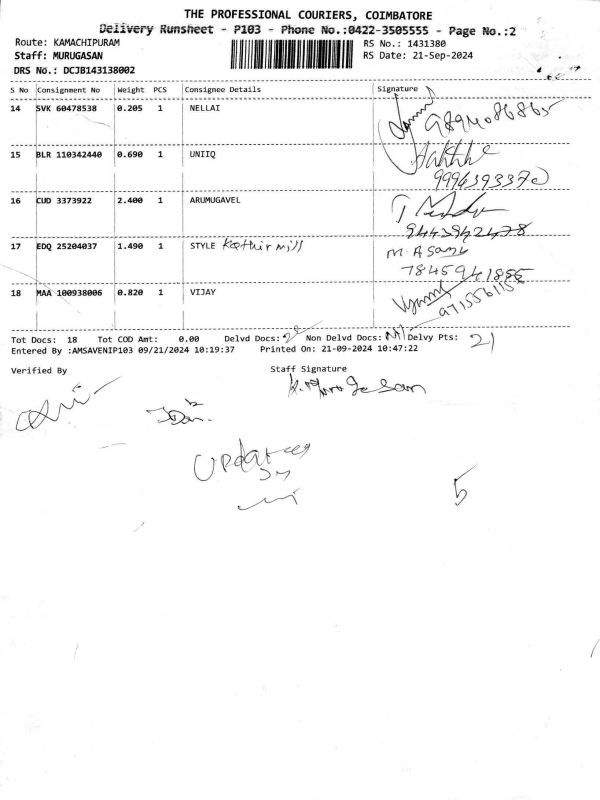 THE PROFESSIONAL COURIERS, COIMBATORE
Delivery Runsheet - P103 - Phone No.:0422-3505555 - Page No.:2
Route: KAMACHIPURAM RS No.: 1431380
Staff: MURUGASAN RS Date: 21-Sep-2024
DRS No.: DCJB143138002
S No Consignment No Weight PCS Consignee Details Signature
14 SVK 60478538 0.205 1 NELLAI
9894086865
15 BLR 110342440 0.690 1 UNIIQ
9994393370
16 CUD 3373922 2.400 1 ARUMUGAVEL
9443942478
17 EDQ 25204037 1.490 1 STYLE Kathir mill M. A Samy
7845941855
18 MAA 100938006 0.820 1 VIJAY
Tot Docs: 18 Tot COD Amt: 0.00 Delvd Docs: Non Delvd Docs: Delvy Pts: 21
Entered By :AMSAVENIP103 09/21/2024 10:19:37 Printed On: 21-09-2024 10:47:22
Verified By Staff Signature
Updated
by
5